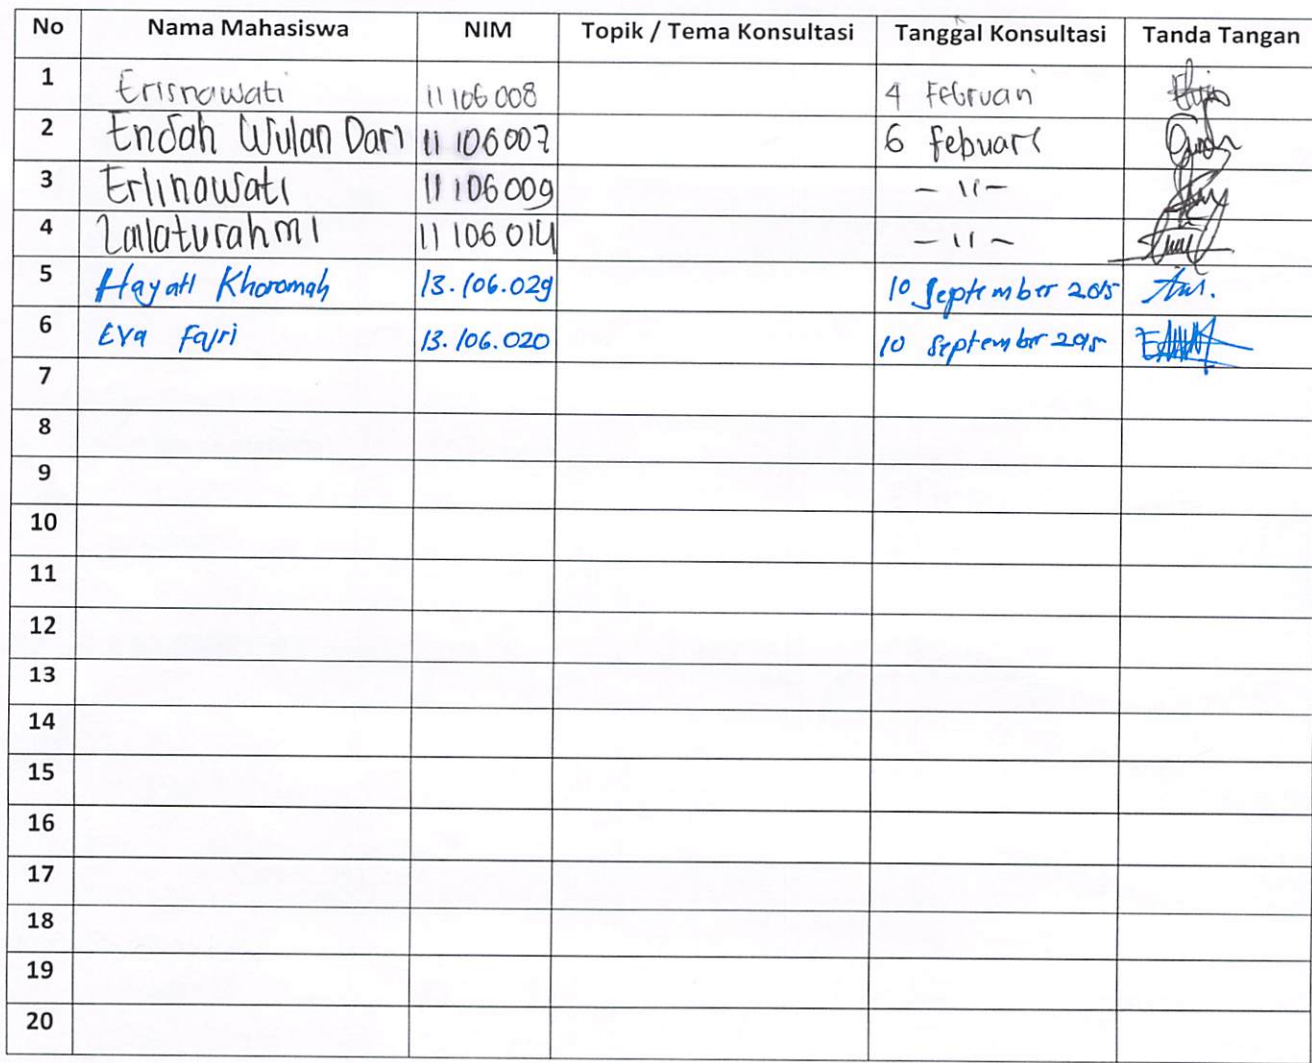 No Nama Mahasiswa NIM Topik / Tema Konsultasi Tanggal Konsultasi Tanda Tangan
1 Erisnawati 11106008 4 Februari
2 Endah Wulan Dari 11106007 6 Febuari
3 Erlinawati 11106009 - 11 -
4 Lailaturahmi 11106014 - 11 -
5 Hayati Khoromah 13.106.029 10 September 2015
6 Eva Fajri 13.106.020 10 September 2015
7
8
9
10
11
12
13
14
15
16
17
18
19
20